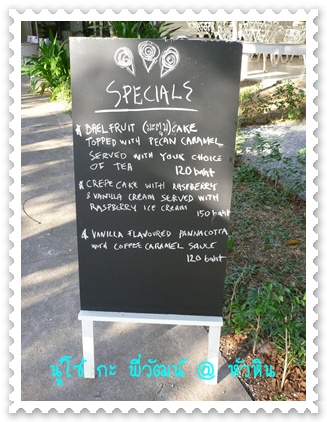 SPECIALS
BAEL FRUIT (มะตูม) CAKE
TOPPED WITH PECAN CARAMEL
SERVED WITH YOUR CHOICE
OF TEA 120 baht
CREPE CAKE WITH RASPBERRY
& VANILLA CREAM SERVED WITH
RASPBERRY ICE CREAM
150 baht
VANILLA FLAVOURED PANNACOTTA
WITH COFFEE CARAMEL SAUCE
120 baht
นู๋โซ่ กะ พี่วัฒน์ @ หัวหิน